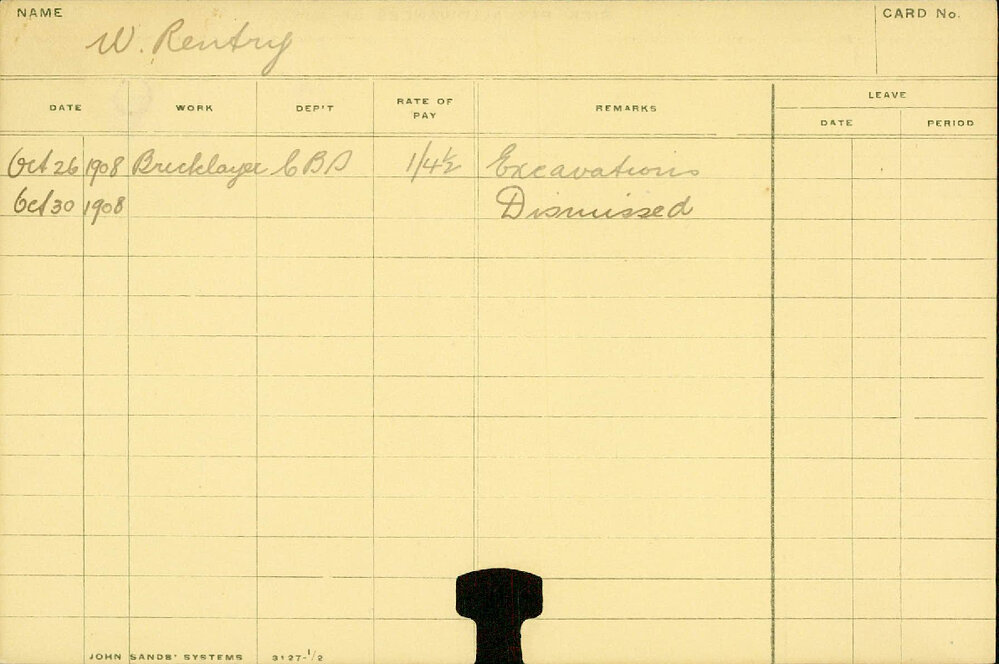 NAME
CARD No.
W. Rentry
DATE WORK DEP'T RATE OF PAY REMARKS LEAVE
DATE PERIOD
Oct 26 1908 Bricklayer C B S 1/4½ Excavations
Oct 30 1908 Dismissed
JOHN SANDS' SYSTEMS 3127-1/2